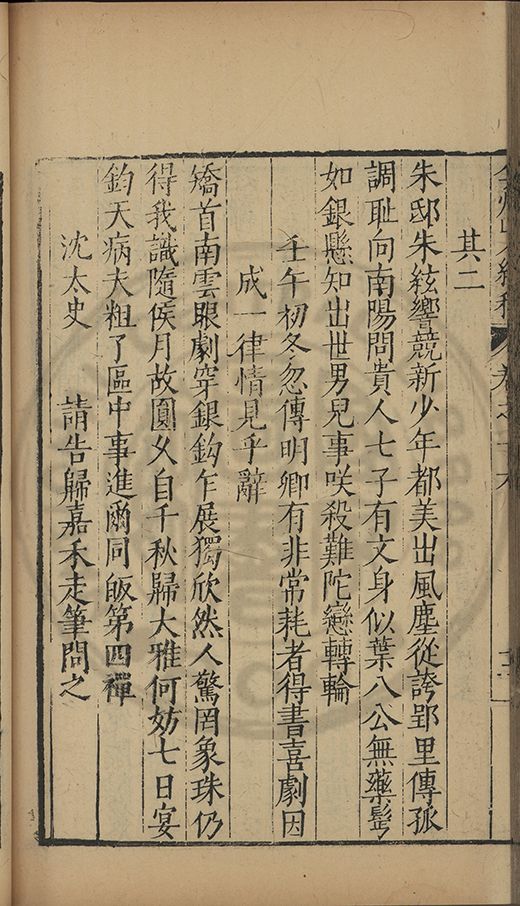 其二
朱邸朱絃響競新少年都美出風塵從誇郢里傳孤
調耻向南陽問貴人七子有文身似葉八公無藥髩
如銀懸知出世男兒事咲殺難陀戀轉輪
壬午初冬忽傳明卿有非常耗者得書喜劇因
成一律情見乎辭
矯首南雲眼劇穿銀鈎乍展獨欣然人驚罔象珠仍
得我識隨侯月故圓文自千秋歸大雅何妨七日宴
鈞天病夫粗了區中事進爾同皈第四禪
沈太史 請告歸嘉禾走筆問之